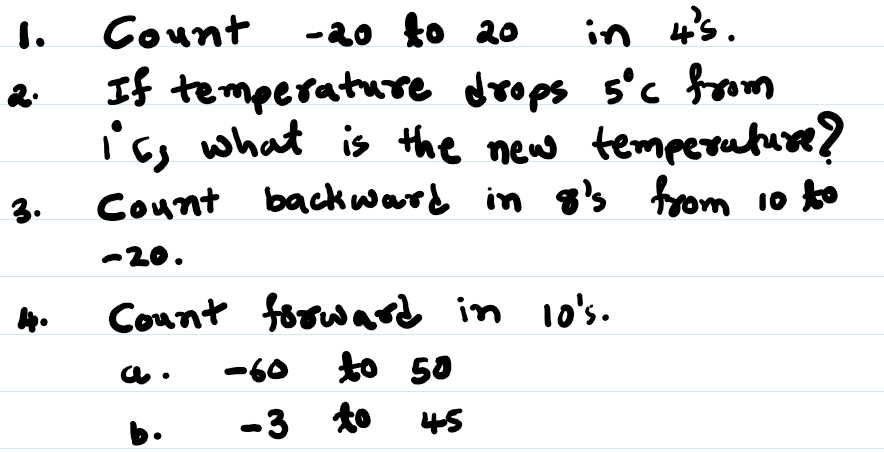 1. Count -20 to 20 in 4's.
2. If temperature drops 5°C from
1°C, what is the new temperature?
3. Count backward in 8's from 10 to
-20.
4. Count forward in 10's.
a. -60 to 50
b. -3 to 45